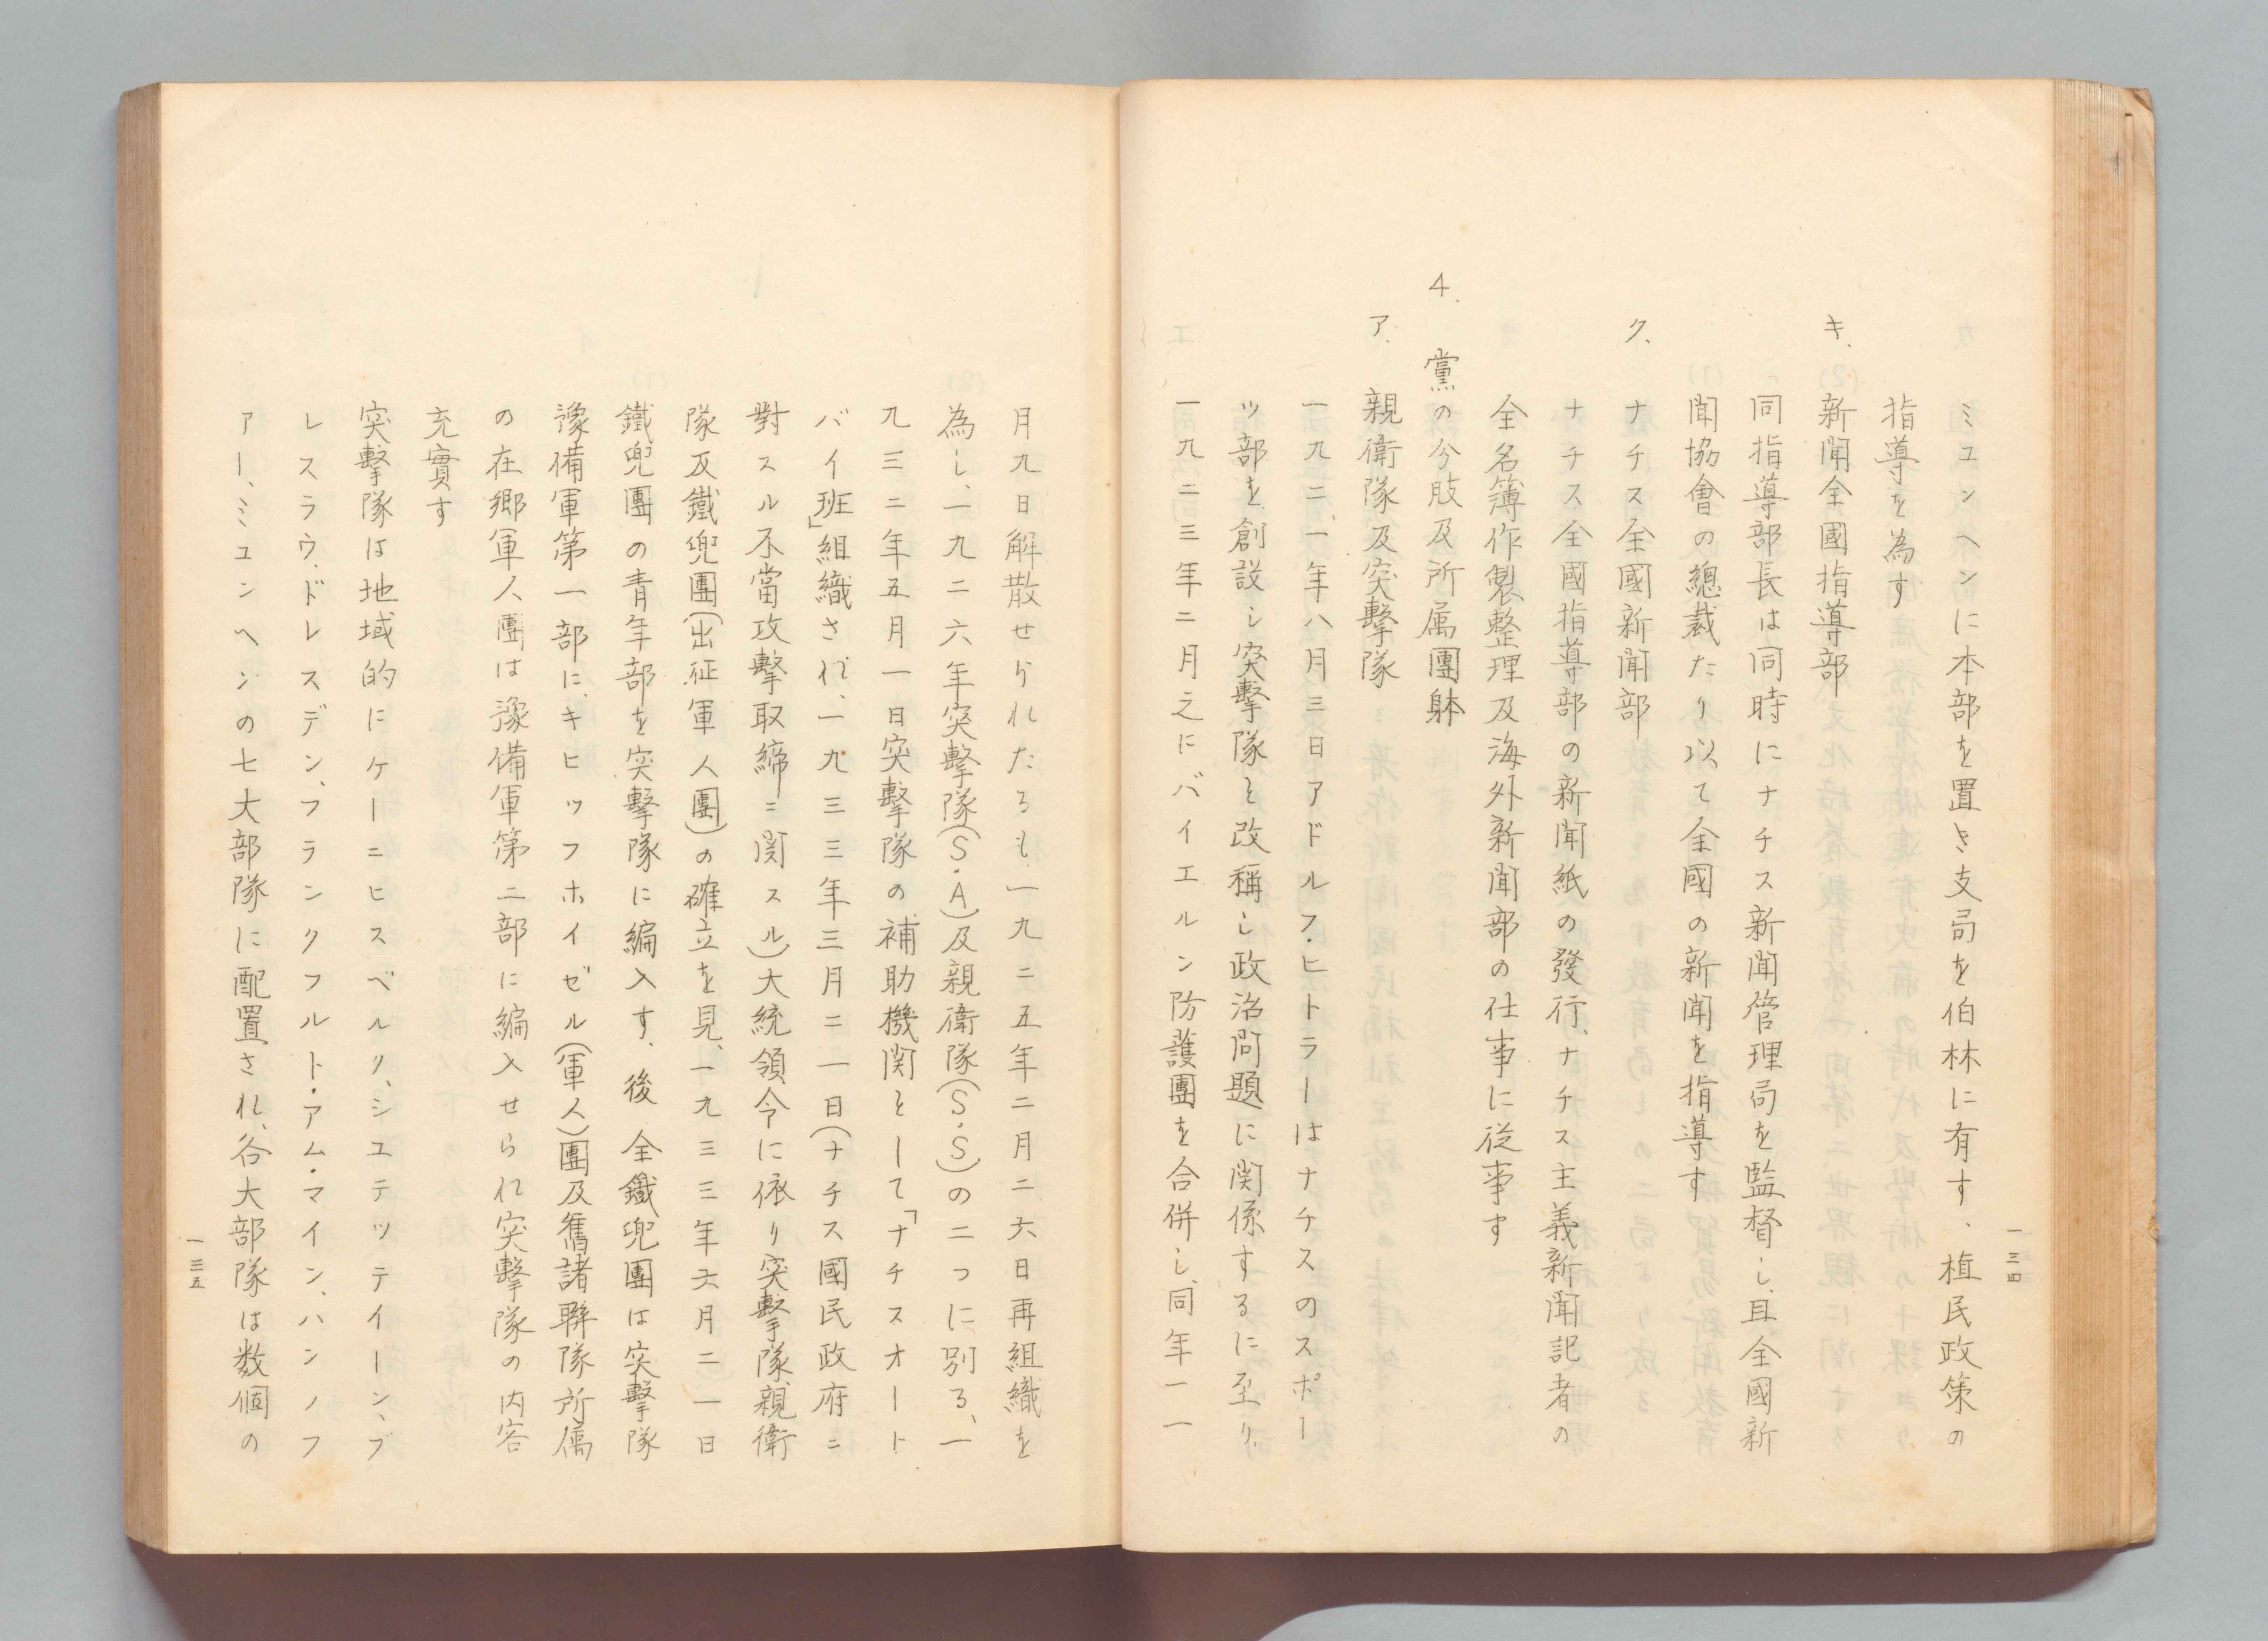 一三四
ミユンヘンに本部を置き支局を伯林に有す、植民政策の
指導を為す
キ、新聞全國指導部
同指導部長は同時にナチス新聞管理局を監督し、且全國新
聞協會の總裁たり以て全國の新聞を指導す
ク、ナチス全國新聞部
ナチス全國指導部の新聞紙の發行、ナチス主義新聞記者の
全名簿作製整理及海外新聞部の仕事に従事す
4. 黨の分肢及所属團躰
ア. 親衛隊及突擊隊
一九二一年八月三日アドルフ・ヒトラーはナチスのスポー
ツ部を創設し突擊隊と改稱し政治問題に関係するに至り、
一九二三年二月之にバイエルン防護團を合併し、同年一一
月九日解散せられたるも、一九二五年二月二六日再組織を
為し、一九二六年突擊隊(S・A)及親衛隊(S・S)の二つに別る、一
九三二年五月一日突擊隊の補助機関として「ナチスオート
バイ班」組織され、一九三三年三月二一日(ナチス國民政府ニ
對スル不當攻擊取締ニ関スル)大統領令に依り突擊隊、親衛
隊及鐵兜團(出征軍人團)の確立を見、一九三三年六月二一日
鐵兜團の青年部を突擊隊に編入す、後全鐵兜團は突擊隊
豫備軍第一部に、キヒッフホイゼル(軍人)團及舊諸聯隊所属
の在郷軍人團は豫備軍第二部に編入せられ突擊隊の内容
充實す
突擊隊は地域的にケーニヒスベルク、シユテッテイーン、ブ
レスラウ、ドレスデン、フランクフルト・アム・マイン、ハンノフ
アー、ミユンヘンの七大部隊に配置され、各大部隊は数個の
一三五